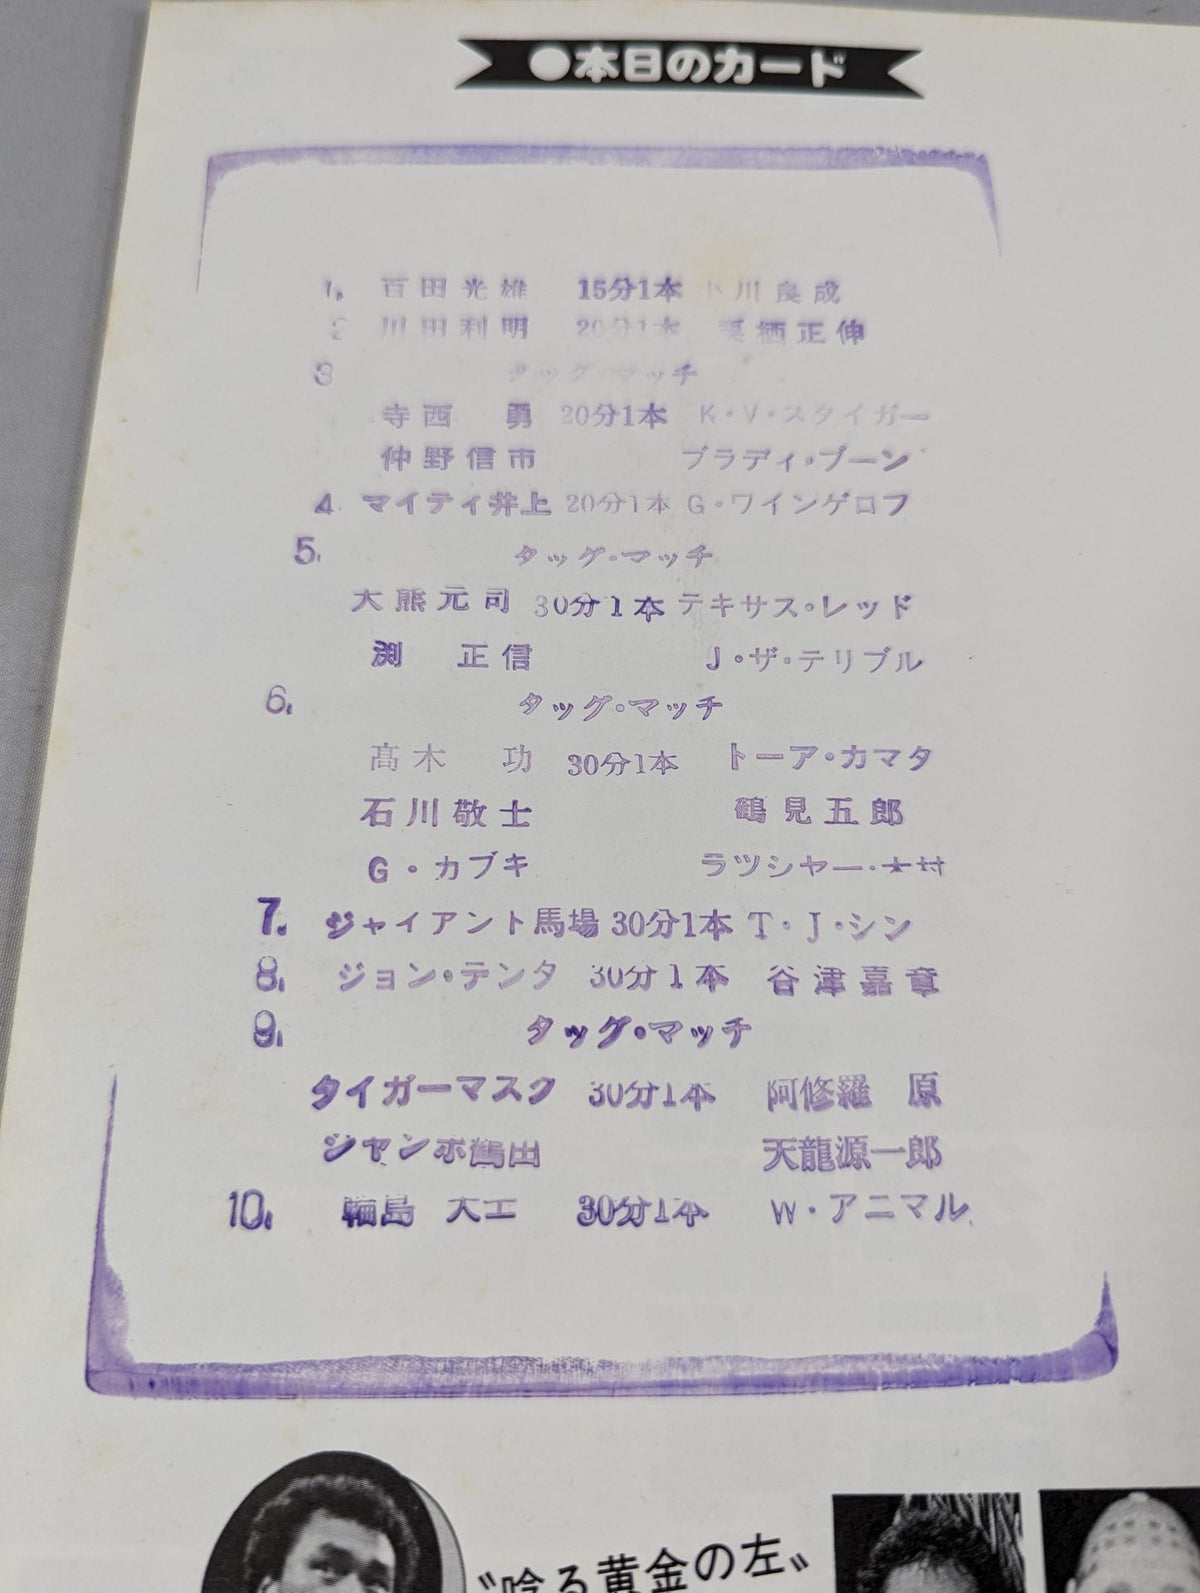 ●本日のカード
1. 百田光雄 15分1本 小川良成
2 川田利明 20分1本 栗栖正伸
3 タッグ・マッチ
寺西 勇 20分1本 K・V・スタイガー
仲野信市 ブラディ・ブーン
4. マイティ井上 20分1本 G・ワインゲロフ
5. タッグ・マッチ
大熊元司 30分1本 テキサス・レッド
渕 正信 J・ザ・テリブル
6. タッグ・マッチ
高木 功 30分1本 トーア・カマタ
石川敬士 鶴見五郎
G・カブキ ラツシヤー・木村
7. ジャイアント馬場 30分1本 T・J・シン
8. ジョン・テンタ 30分1本 谷津嘉章
9. タッグ・マッチ
タイガーマスク 30分1本 阿修羅 原
ジャンボ鶴田 天龍源一郎
10. 輪島 大士 30分1本 W・アニマル
〝唸る黄金の左〟